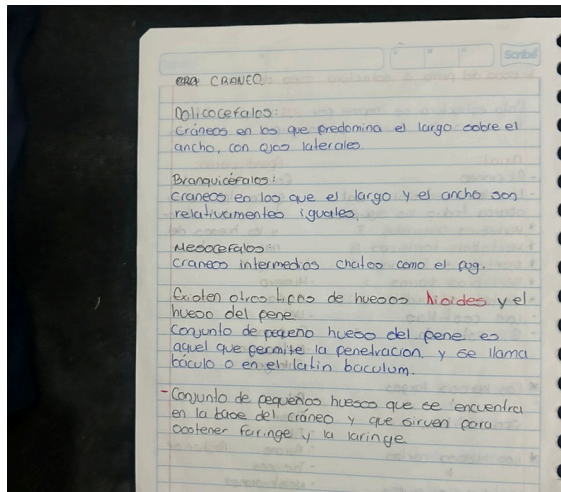 Scribe
CRANEO
Dolicocefalos:
Cráneos en los que predomina el largo sobre el
ancho, con ojos laterales.
Branquicéfalos:
Craneos en los que el largo y el ancho son
relativamentes iguales.
Mesocefalos:
Craneos intermedios chatos como el pug.
Existen otros tipos de huesos hioides y el
hueso del pene.
Conjunto de pequeño hueso del pene es
aquel que permite la penetracion, y se llama
báculo o en el latin baculum.
- Conjunto de pequeños huesos que se encuentra
en la base del cráneo y que sirven para
sostener faringe y la laringe